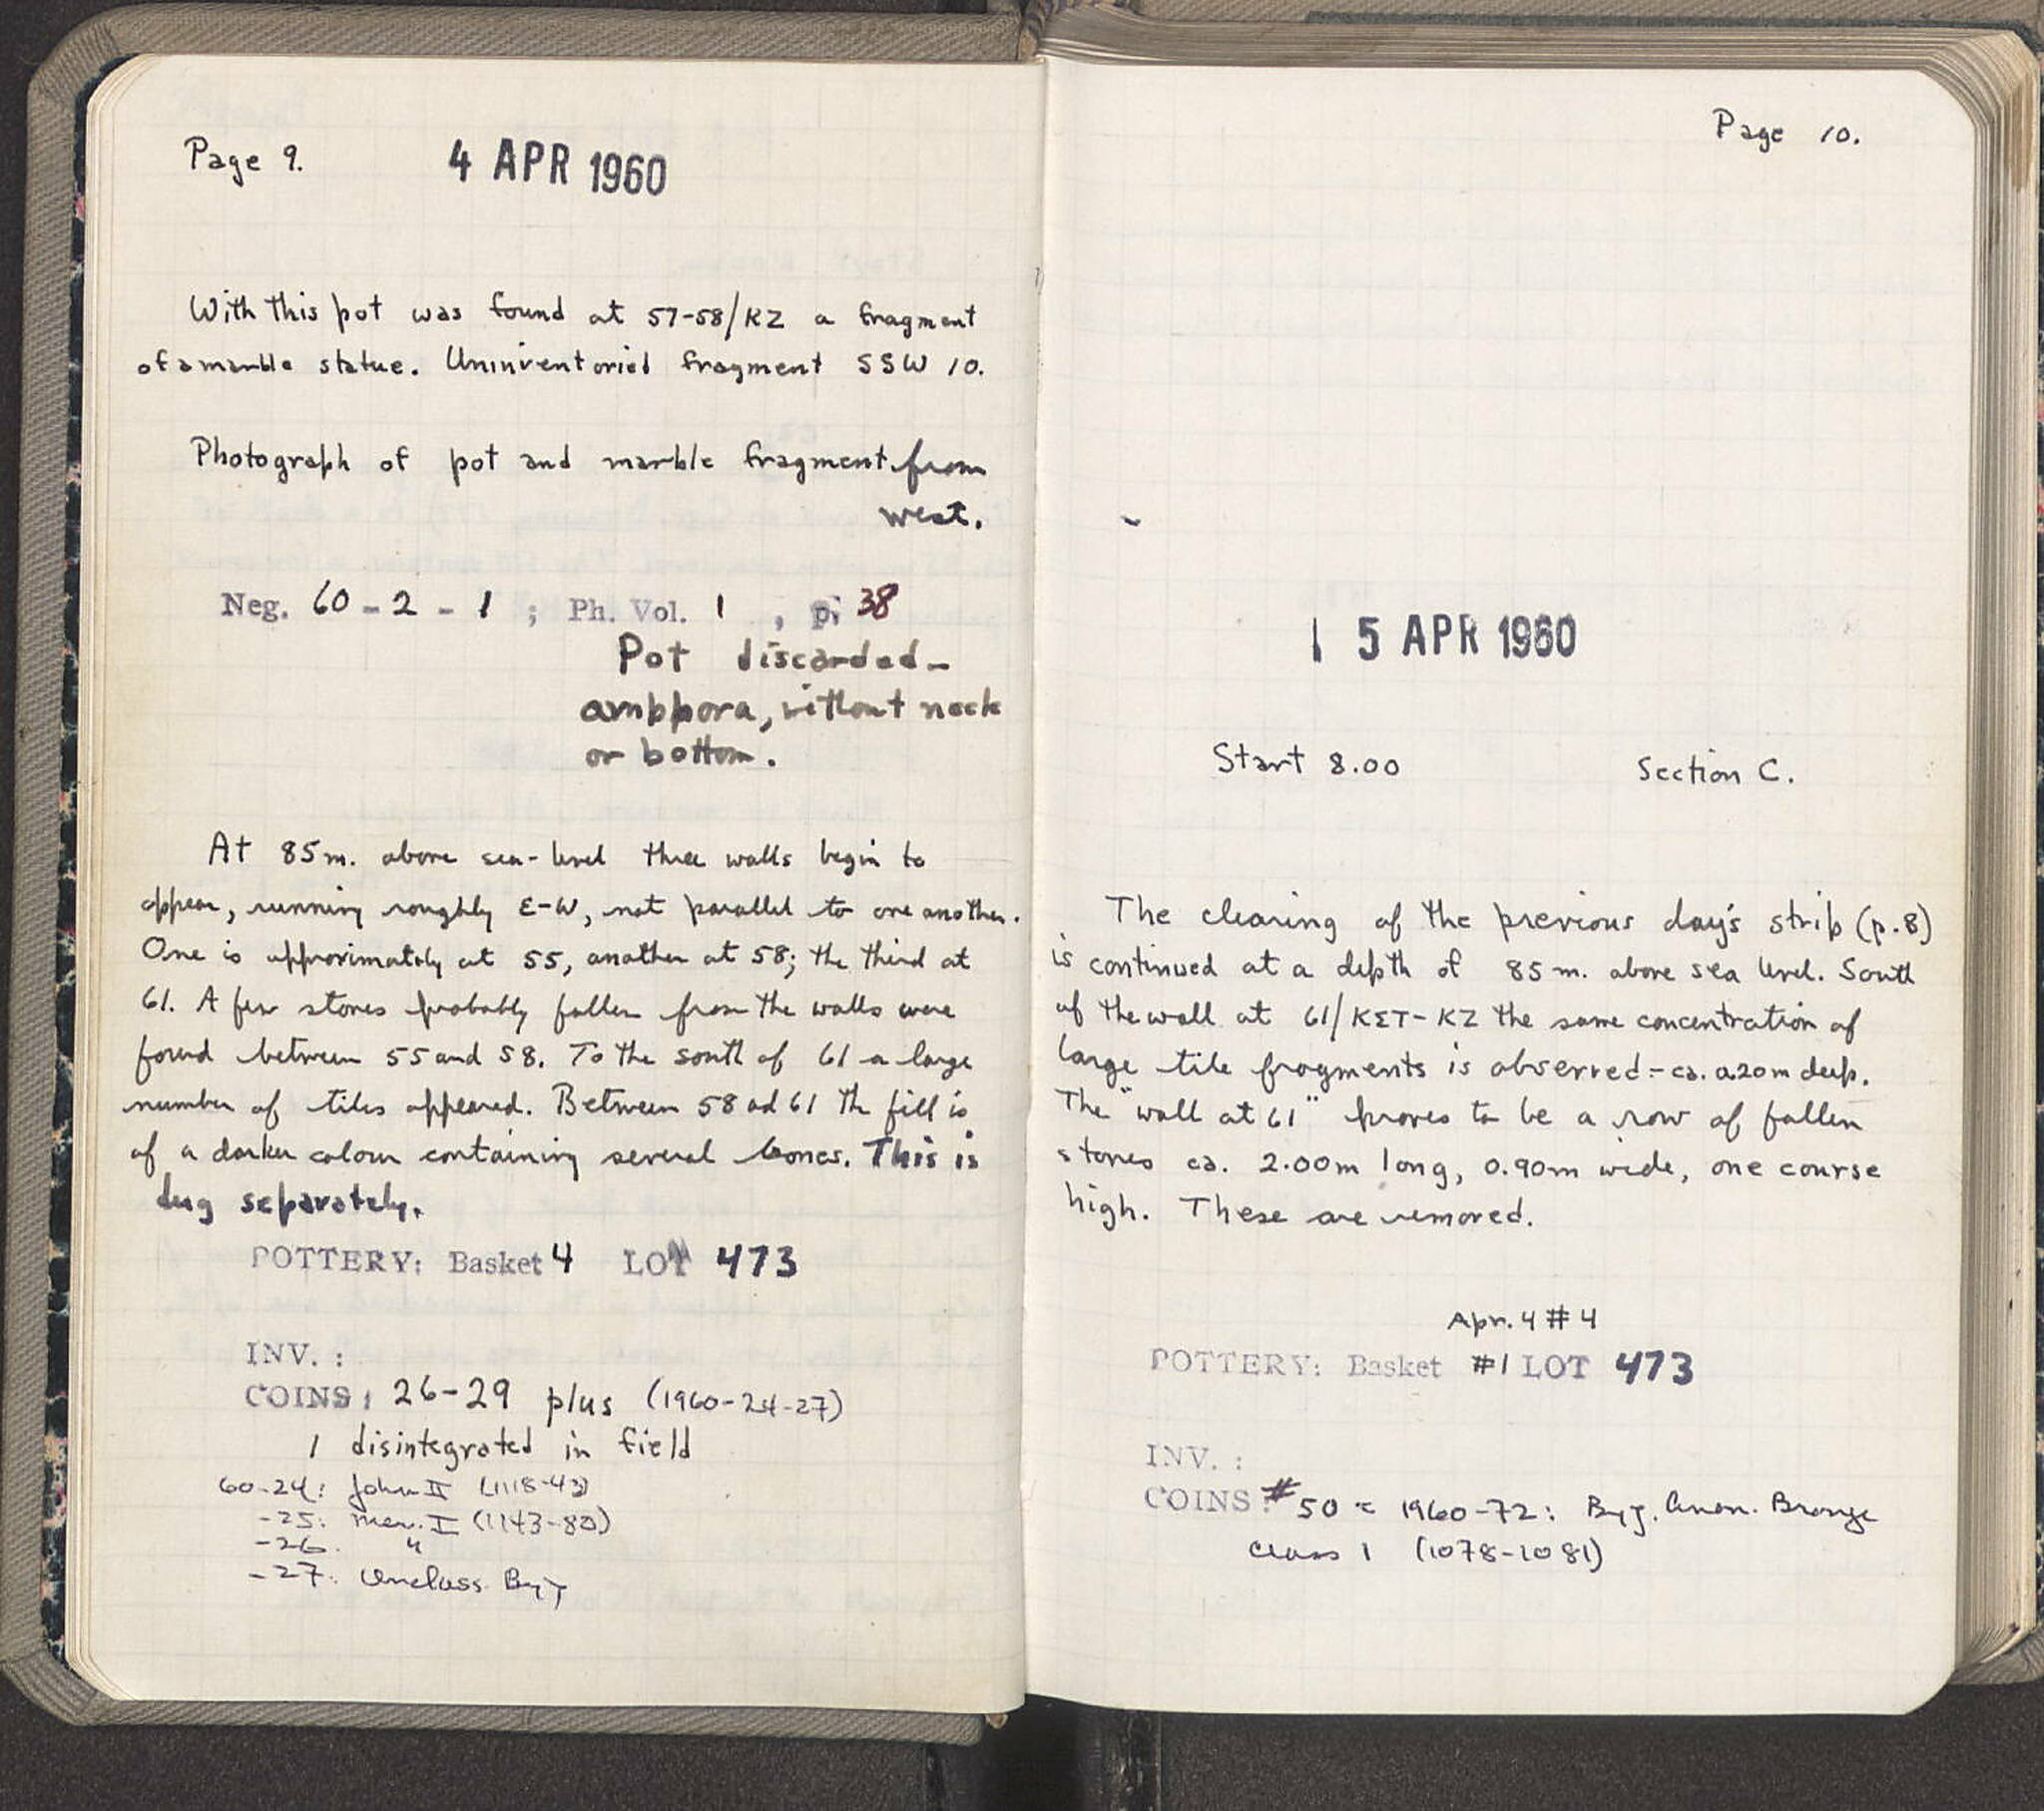 Page 9.
4 APR 1960
With this pot was found at 57-58/KZ a fragment
of a marble statue. Uninventoried fragment SSW 10.
Photograph of pot and marble fragment from
west.
Neg. 60 - 2 - 1 ; Ph. Vol. 1 , p. 38
Pot discarded -
amphora, without neck
or bottom.
At 85m. above sea-level three walls begin to
appear, running roughly E-W, not parallel to one another.
One is approximately at 55, another at 58; the third at
61. A few stones probably fallen from the walls were
found between 55 and 58. To the south of 61 a large
number of tiles appeared. Between 58 ad 61 the fill is
of a darker colour containing several bones. This is
dug separately.
POTTERY: Basket 4 LOT 473
INV. :
COINS: 26-29 plus (1960-24-27)
1 disintegrated in field
60-24: John II (1118-43)
-25: Man. I (1143-80)
-26. "
-27: Unclass. Byz
Page 10.
1 5 APR 1960
Start 8.00 Section C.
The clearing of the previous day's strip (p.8)
is continued at a depth of 85 m. above sea level. South
of the wall at 61/KΣT-KZ the same concentration of
large tile fragments is observed - ca. 0.20m deep.
The "wall at 61" proves to be a row of fallen
stones ca. 2.00m long, 0.90m wide, one course
high. These are removed.
Apr. 4 # 4
POTTERY: Basket #1 LOT 473
INV. :
COINS: # 50 = 1960-72: Byz. Anon. Bronze
Class I (1078-1081)